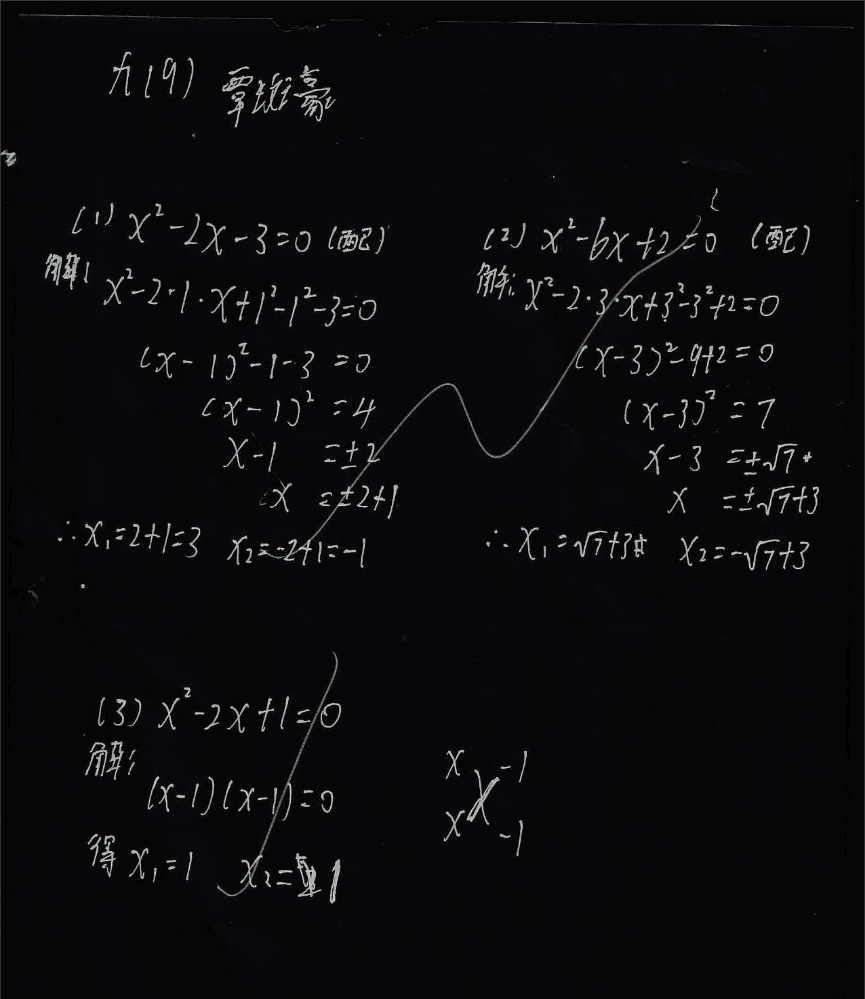 九(9) 覃
(1) x²-2x-3=0 (配)
解: x²-2·1·x+1²-1²-3=0
(x-1)²-1-3=0
(x-1)²=4
x-1=±2
x=±2+1
∴x₁=2+1=3 x₂=-2+1=-1
(2) x²-6x+2=0 (配)
解: x²-2·3·x+3²-3²+2=0
(x-3)²-9+2=0
(x-3)²=7
x-3=±√7
x=±√7+3
∴x₁=√7+3 x₂=-√7+3
(3) x²-2x+1=0
解:
(x-1)(x-1)=0
得 x₁=1 x₂=1
x -1
x -1